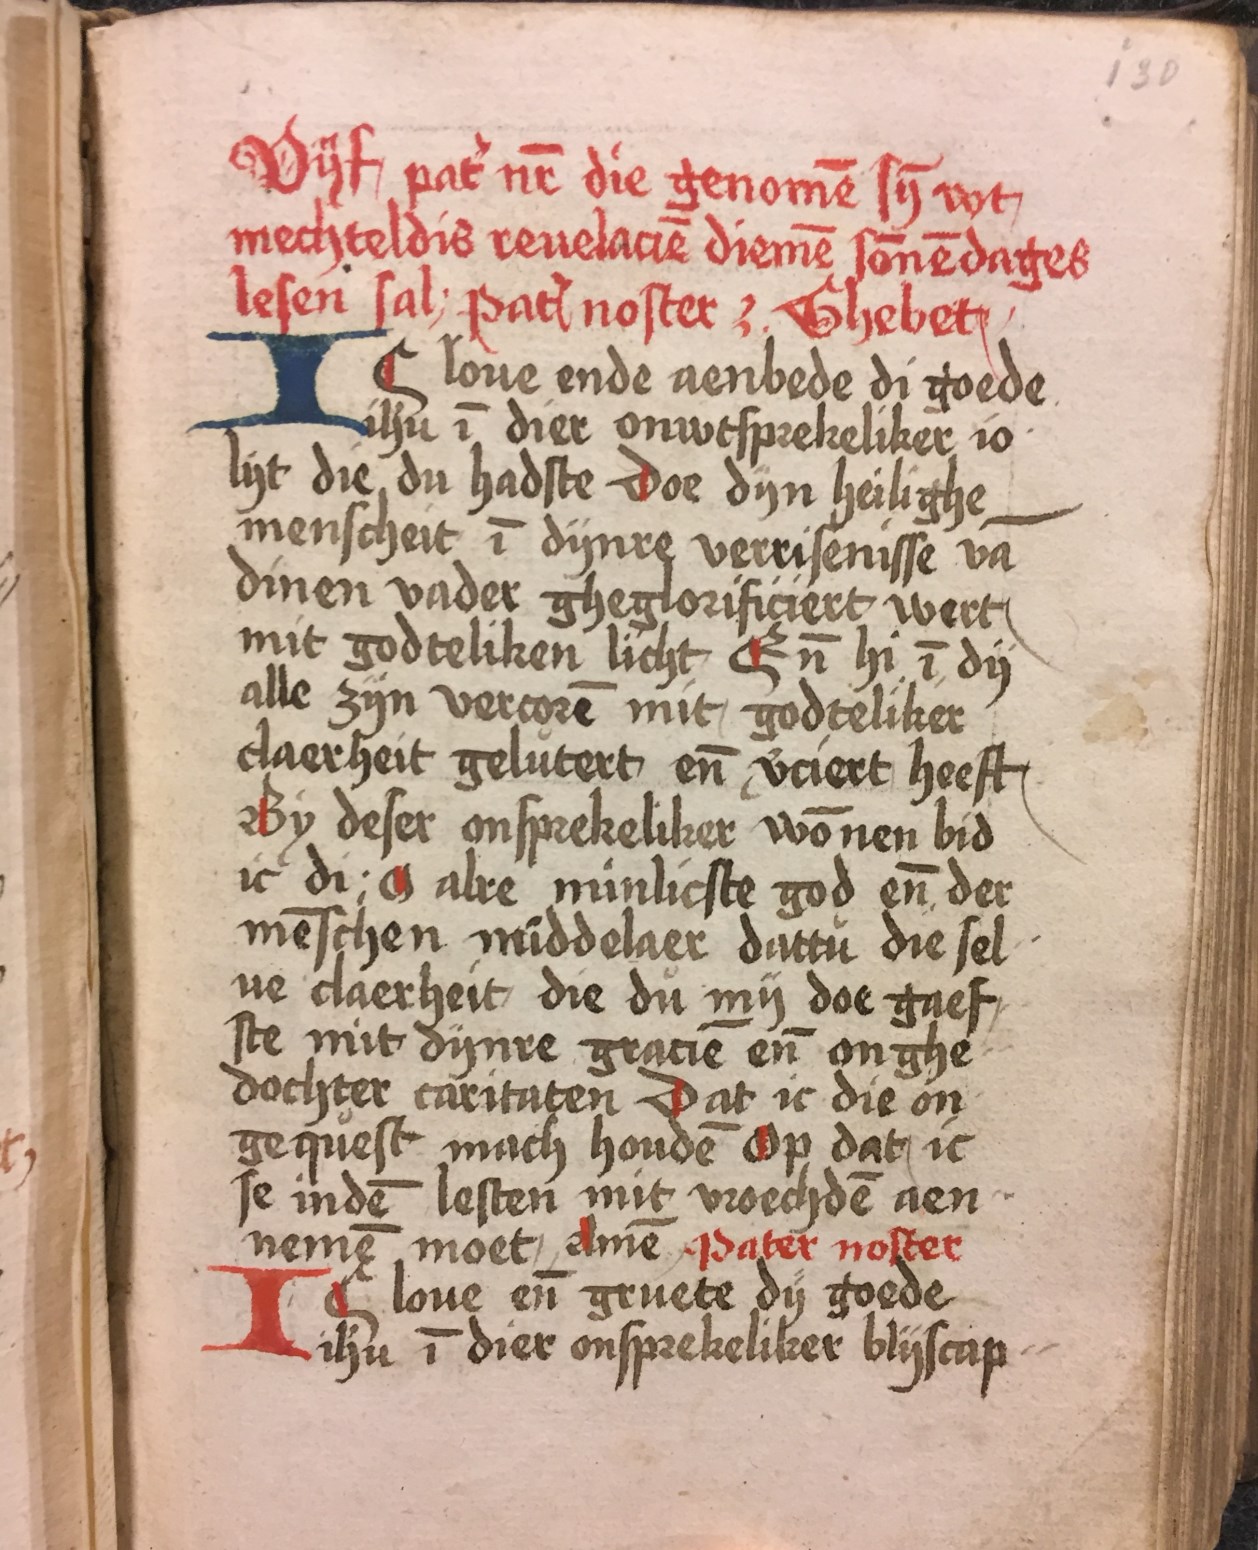 130
Vijf pat' nr̄ die genomē sȳ wt
mechteldis reuelaciē diemē sōnēdages
lesen sal; Pat' noster ꝫ. Ghebet
IC loue ende aenbede di goede
ihū ī dier onwtsprekeliker io
lijt die du hadste Doe dijn heilighe
menscheit ī dijnre verrisenisse vā
dinen vader gheglorificiert wert
mit godteliken licht En̄ hi ī dij
alle zijn vercorē mit godteliker
claerheit gelutert en̄ v̄ciert heeft
By deser onsprekeliker wōnen bid
ic di; O alre minlicste god en̄ der
mēschen middelaer dattu die sel
ue claerheit die du mij doe gaef
ste mit dijnre graciē en̄ onghe
dochter caritaten Dat ic die on
gequest mach houdē Op dat ic
se indē lesten mit vroechdē aen
nemē moet Amē Pater noster
IC loue en̄ gruete dij goede
ihū ī dier onsprekeliker blijscap